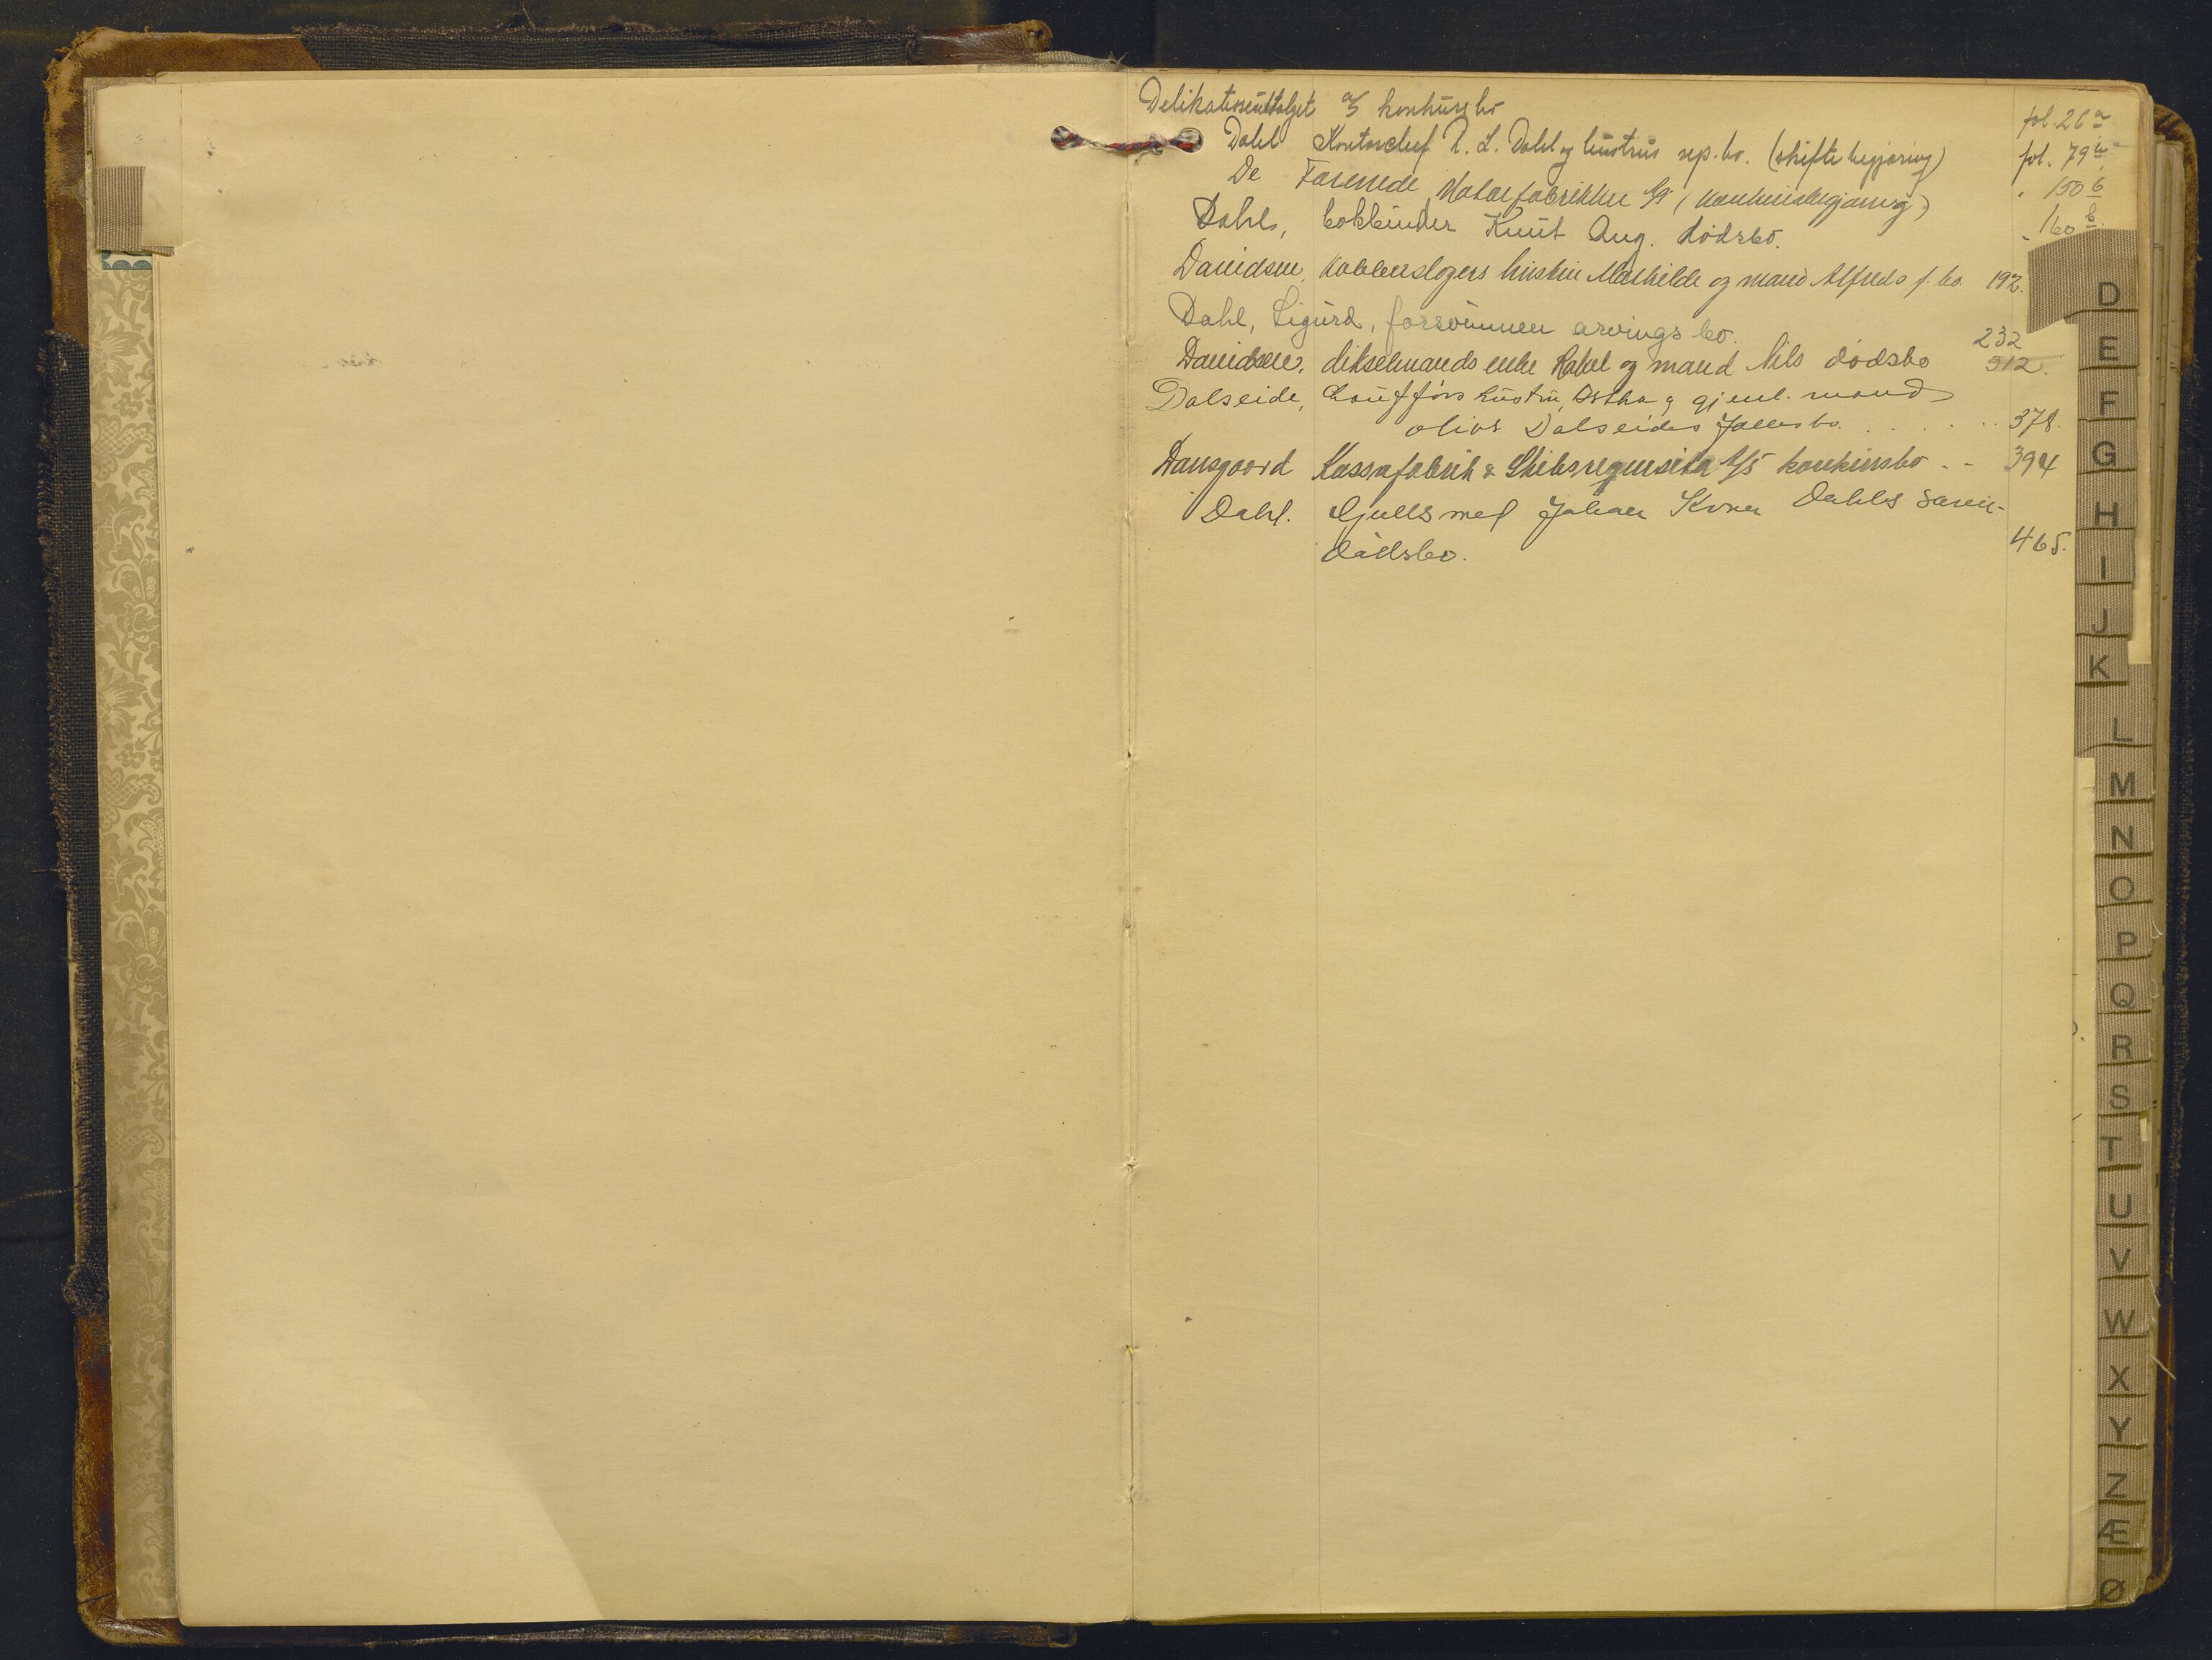 Delikatesseutsalget A/S konkursbo fol. 26 a
Dahl Kontorchef R. L. Dahl og hustrus sep. bo. (skiftebegjæring) fol. 79 b
De Forenede Motorfabrikker A/S (konkursbegjæring) " 150 b
Dahls, bokbinder Knut Aug. dødsbo. " 160 b
Davidsen, kobberslagers hustru Mathilde og mand Alfreds f. bo. 192.
Dahl, Sigurd, forsvunnen arvings bo. 232
Davidsen, dikselmands enke Rakel og mand Nils dødsbo 312.
Dalseide, chaufførs hustru, Astha og gjenl. mand
Olius Dalseides fælles bo. . . . . . 378.
Dansgaard Kassafabrik & Skibsrequisita A/S konkursbo - - 394
Dahl. Gullsmed Johan Dahls
dødsbo. 465.
D
E
F
G
H
I
J
K
L
M
N
O
P
Q
R
S
T
U
V
W
X
Y
Z
Æ
Ø